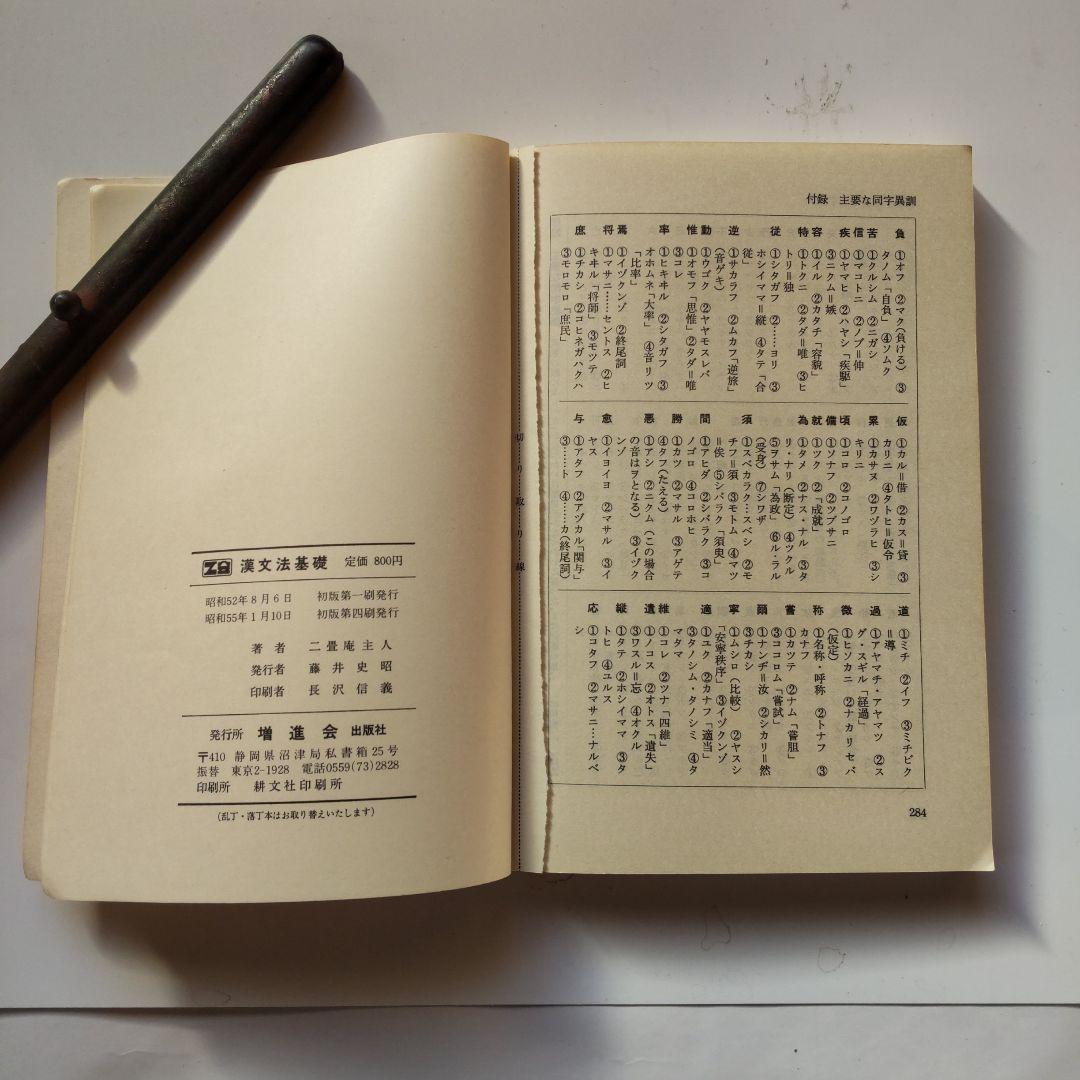 Z会 漢文法基礎 定価 800円
昭和52年8月6日 初版第一刷発行
昭和55年1月10日 初版第四刷発行
著者 二畳庵主人
発行者 藤井史昭
印刷者 長沢信義
発行所 増進会出版社
〒410 静岡県沼津局私書箱25号
振替 東京2-1928 電話0559(73)2828
印刷所 耕文社印刷所
(乱丁・落丁本はお取り替えいたします)
切り取り線
付録 主要な同字異訓
負 ①オフ ②マク(負ける) ③
タノム「自負」 ④ソムク
苦 ①クルシム ②ニガシ
信 ①マコトニ ②ノブ=伸
疾 ①ヤマヒ ②ハヤシ「疾駆」
③ニクム=嫉
容 ①イル ②カタチ「容貌」
特 ①トクニ ②タダ=唯 ③ヒ
トリ=独
従 ①シタガフ ②……ヨリ ③
ホシイママ=縦 ④タテ「合
従」
逆 ①サカラフ ②ムカフ「逆旅」
(音ゲキ)
動 ①ウゴク ②ヤヤモスレバ
惟 ①オモフ「思惟」 ②タダ=唯
③コレ
率 ①ヒキヰル ②シタガフ ③
オホムネ「大率」 ④音リツ
「比率」
焉 ①イヅクンゾ ②終尾詞
将 ①マサニ……セントス ②ヒ
キヰル「将師」 ③モツテ
庶 ①チカシ ②コヒネガハクハ
③モロモロ「庶民」
仮 ①カル=借 ②カス=貸 ③
カリニ ④タトヒ=仮令
累 ①カサヌ ②ワヅラヒ ③シ
キリニ
頃 ①コロ ②コノゴロ
備 ①ソナフ ②ツブサニ
就 ①ツク ②「成就」
為 ①タメ ②ナス・ナル ③タ
リ・ナリ(断定) ④ツクル
⑤ヲサム「為政」 ⑥ル・ラル
(受身) ⑦シワザ
須 ①スベカラク…スベシ ②モ
チフ=須 ③モトム ④マツ
=俟 ⑤シバラク「須臾」
間 ①アヒダ ②シバラク ③コ
ノゴロ ④コロホヒ
勝 ①カツ ②マサル ③アゲテ
④タフ(たえる)
悪 ①アシ ②ニクム(この場合
の音はヲとなる) ③イヅク
ンゾ
愈 ①イヨイヨ ②マサル ③イ
ヤス
与 ①アタフ ②アヅカル「関与」
③……ト ④……カ(終尾詞)
道 ①ミチ ②イフ ③ミチビク
=導
過 ①アヤマチ・アヤマツ ②ス
グ・スギル「経過」
微 ①ヒソカニ ②ナカリセバ
(仮定)
称 ①名称・呼称 ②トナフ ③
カナフ
嘗 ①カツテ ②ナム「嘗胆」
③ココロム「嘗試」
爾 ①ナンヂ=汝 ②シカリ=然
③チカシ
寧 ①ムシロ(比較) ②ヤスシ
「安寧秩序」 ③イヅクンゾ
適 ①ユク ②カナフ「適当」
③タノシム・タノシミ ④タ
マタマ
維 ①コレ ②ツナ「四維」
遺 ①ノコス ②オトス「遺失」
③ワスル=忘 ④オクル
縦 ①タテ ②ホシイママ ③タ
トヒ ④ユルス
応 ①コタフ ②マサニ…ナルベ
シ
284